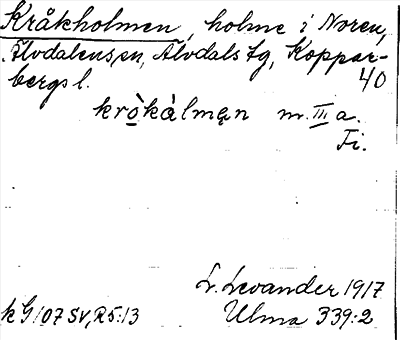 Kråkholmen, holme i Noren,
Älvdalens sn, Älvdals tg, Koppar-
bergs l. 40
krò̱kàlmąn m. III a.
Fi.
L. Levander 1917
kG 107 SV, R5:13 Ulma 339:2